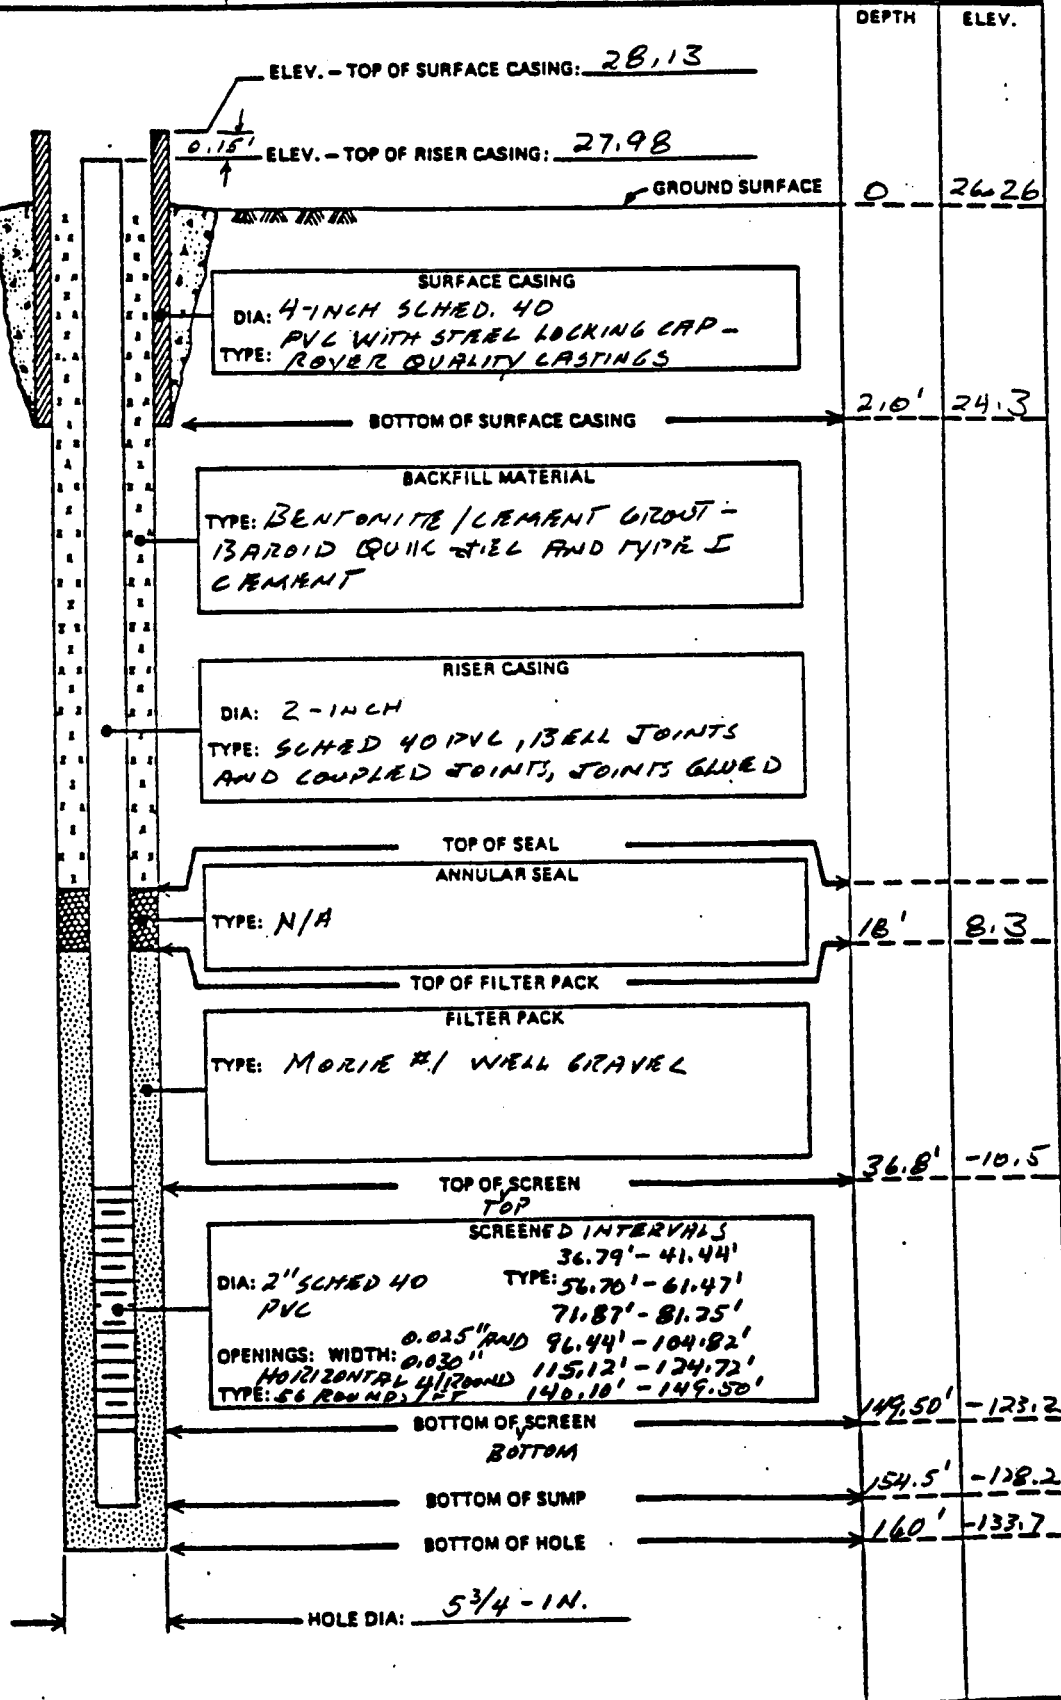 DEPTH ELEV.
ELEV. – TOP OF SURFACE CASING: 28.13
0.15'
ELEV. – TOP OF RISER CASING: 27.98
GROUND SURFACE 0 26.26
SURFACE CASING
DIA: 4-INCH SCHED. 40
PVC WITH STEEL LOCKING CAP –
TYPE: ROYER QUALITY CASTINGS
BOTTOM OF SURFACE CASING 2.0' 24.3
BACKFILL MATERIAL
TYPE: BENTONITE / CEMENT GROUT –
BAROID QUIK-GEL AND TYPE I
CEMENT
RISER CASING
DIA: 2-INCH
TYPE: SCHED 40 PVC, BELL JOINTS
AND COUPLED JOINTS, JOINTS GLUED
TOP OF SEAL
ANNULAR SEAL
TYPE: N/A
18' 8.3
TOP OF FILTER PACK
FILTER PACK
TYPE: MORIE #1 WELL GRAVEL
36.8' -10.5
TOP OF SCREEN
TOP
SCREENED INTERVALS
36.79' – 41.44'
DIA: 2" SCHED 40 TYPE: 56.70' – 61.47'
PVC 71.87' – 81.25'
0.025" AND 96.44' – 104.82'
OPENINGS: WIDTH: 0.030" 115.12' – 124.72'
HORIZONTAL 4/ROUND
TYPE: 56 ROUNDS/FT 140.10' – 149.50'
BOTTOM OF SCREEN 149.50' -123.2
BOTTOM
BOTTOM OF SUMP 154.5' -128.2
BOTTOM OF HOLE 160' -133.7
HOLE DIA: 5 3/4 - IN.